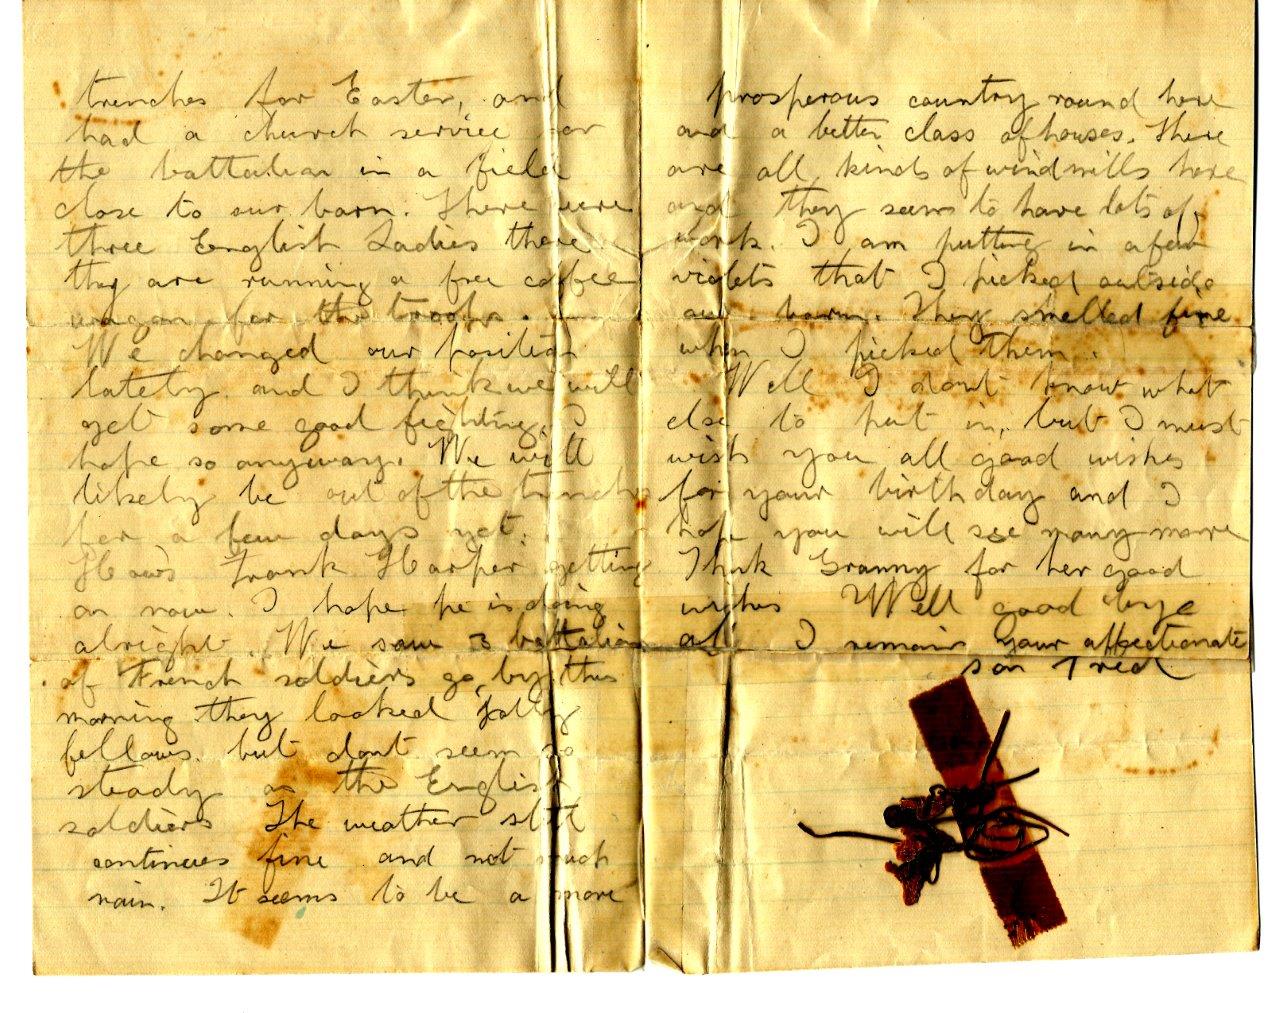 trenches for Easter, and
had a church service for
the battalion in a field
close to our barn. There were
three English Ladies there
they are running a free coffee
wagon for the troops.
We changed our position
lately and I think we will
get some good fighting, I
hope so anyway. We will
likely be out of the trenches
for a few days yet.
Hows Frank Harper getting
on now. I hope he is doing
alright. We saw 3 battalions
of French soldiers go by this
morning they looked jolly
fellows. but dont seem so
steady as the English
soldiers The weather still
continues fine and not much
rain. It seems to be a more
prosperous country round here
and a better class of houses. There
are all kinds of windmills here
and they seem to have lots of
work. I am putting in a few
violets that I picked outside
our barn. They smelled fine
when I picked them.
Well I dont know what
else to put in, but I must
wish you all good wishes
for your birthday and I
hope you will see many more
Thank Granny for her good
wishes Well good bye
all I remain Your affectionate
son Fred